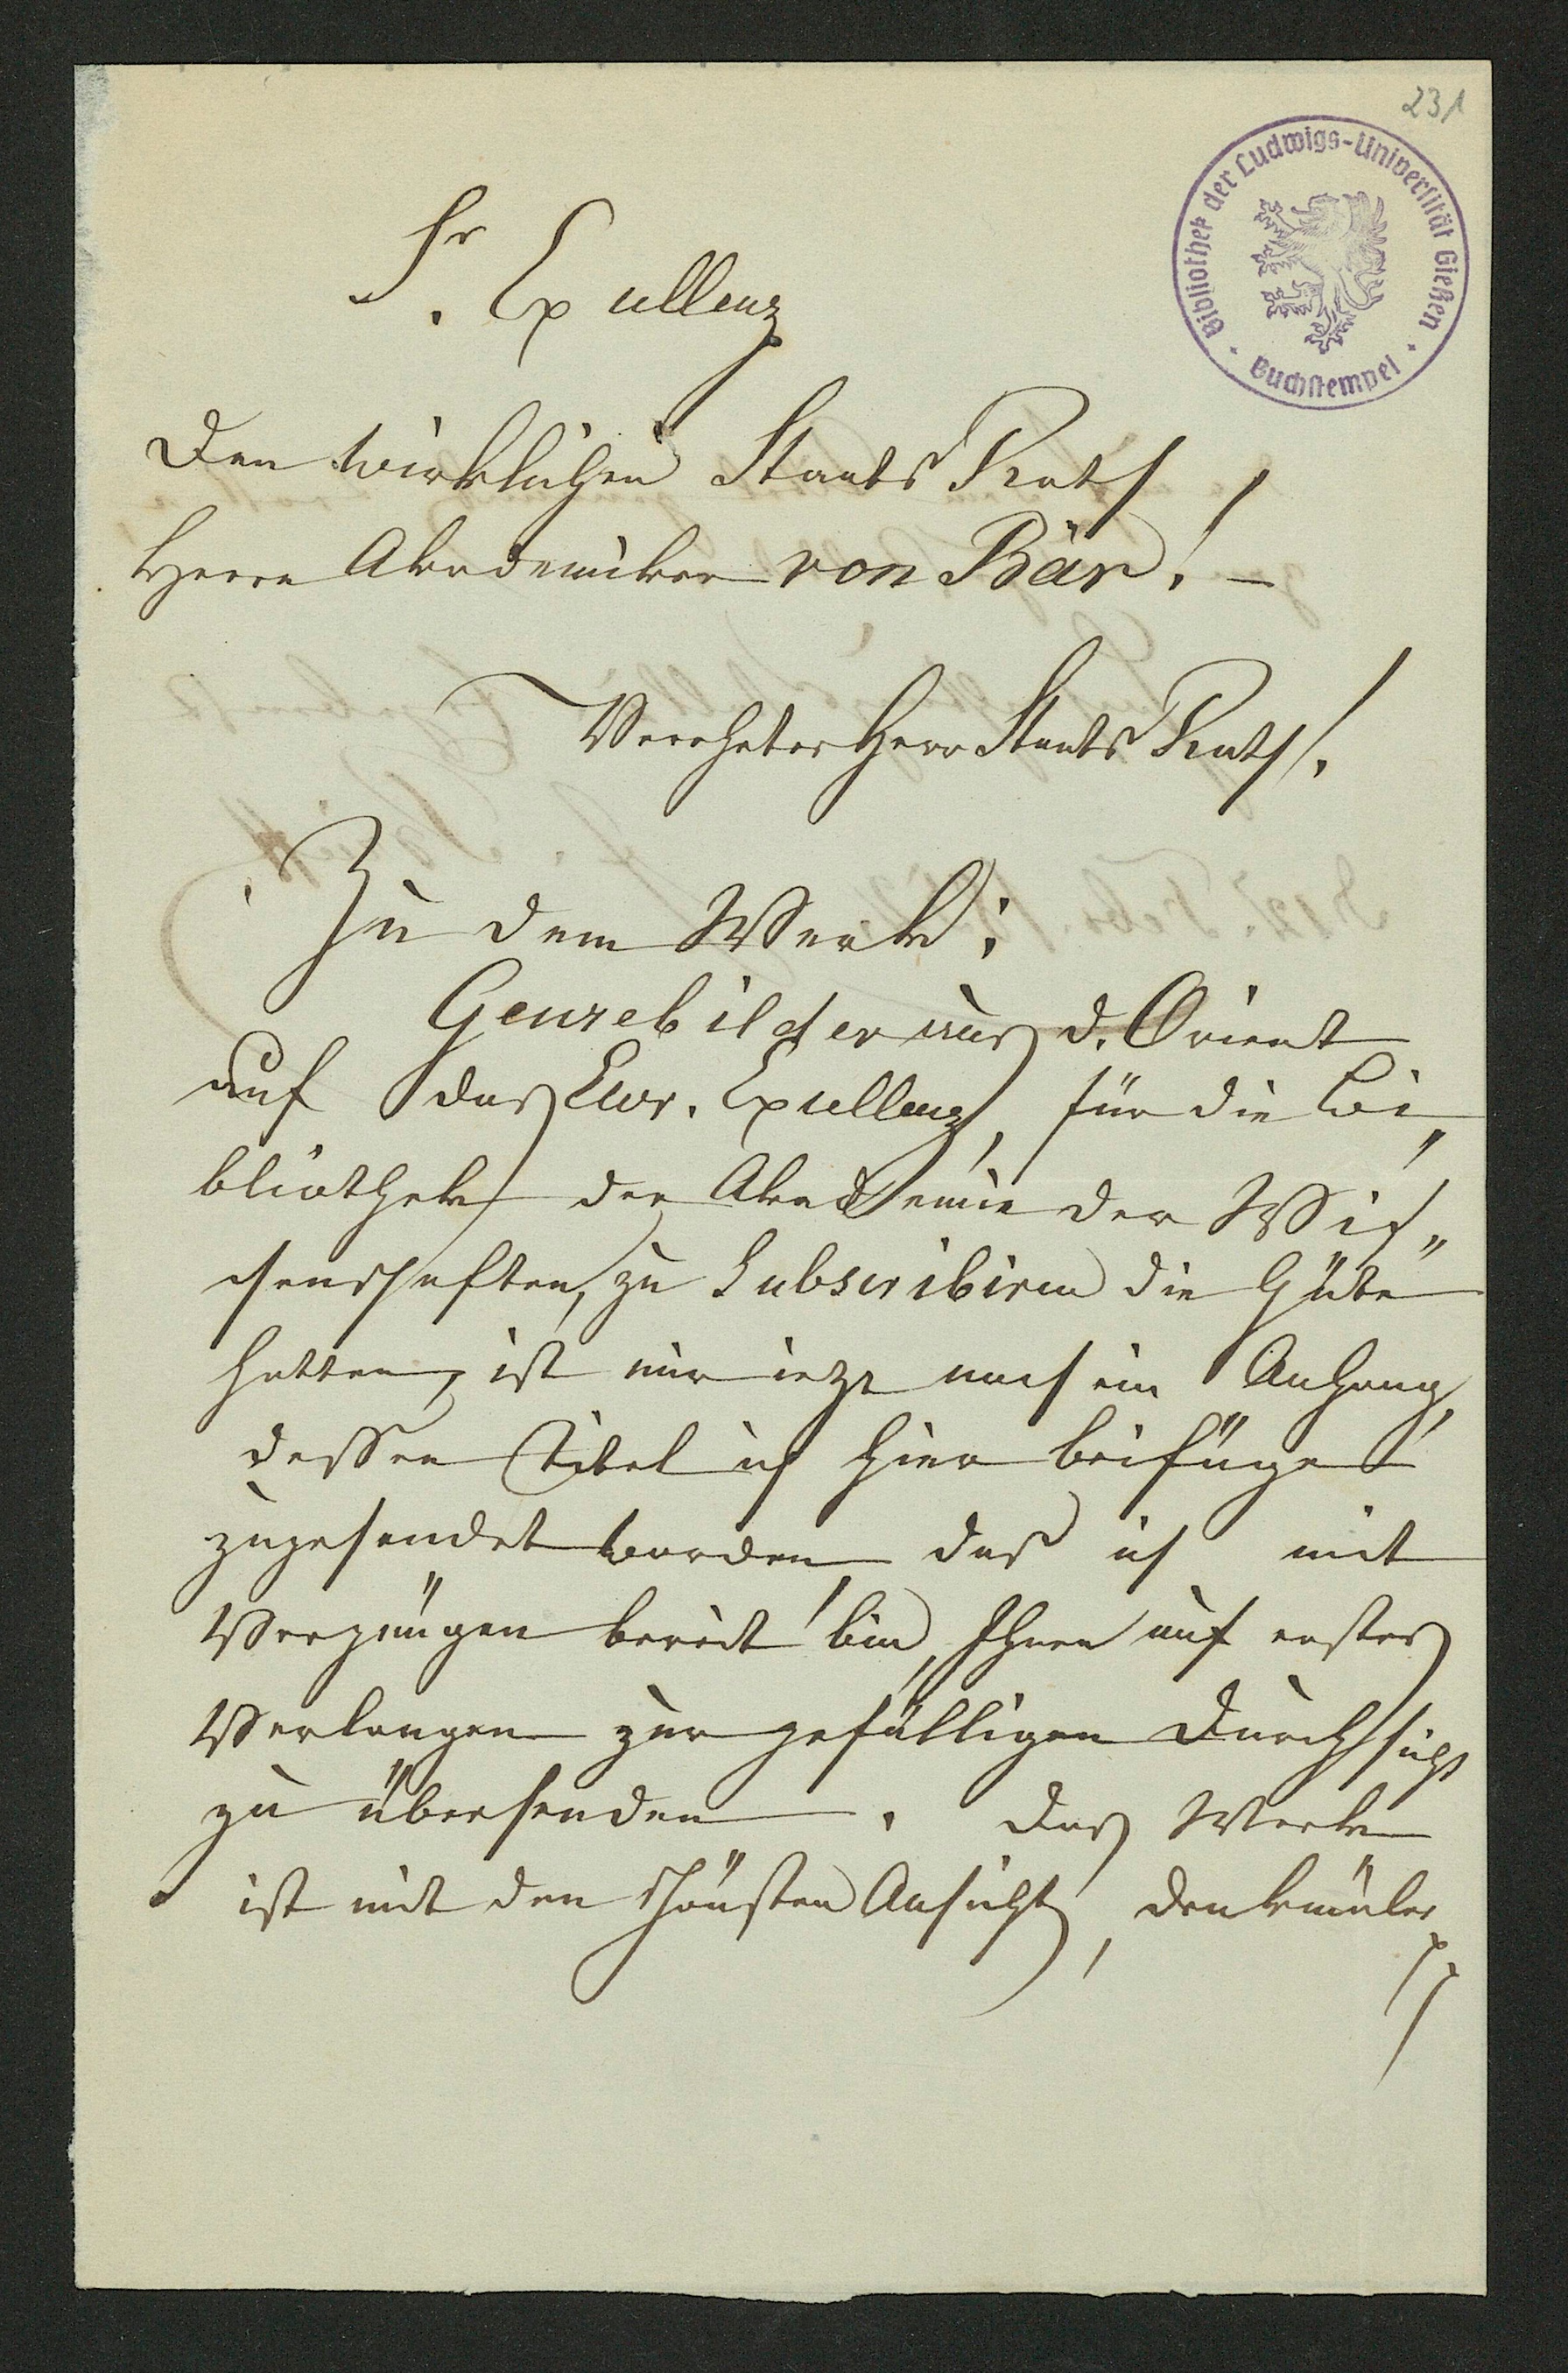 231
Bibliothek der Ludwigs-Universität Gießen
Buchstempel
Sr. Excellenz
Den wirklichen Staats Rath,
Herrn Akademiker von Bär! –
Verehrter Herr Staats Rath!
Zu dem Werke:
Genrebilder aus d. Orient
auf das Ewr. Excellenz, für die Bi„
bliothek der Akademie der Wis„
senschaften, zu Subscribiren die Güte
hatten, ist mir iezt noch ein Anhang,
dessen Titel ich hier beifüge
zugesendet worden, das ich mit
Vergnügen bereit bin, Ihnen auf erstes
Verlangen zur gefälligen Durchsicht
zu übersenden. Das Werk
ist mit den schönsten Ansicht, Denkmäler